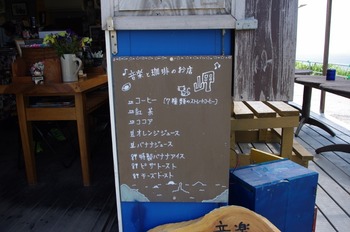 ♪音楽と珈琲のお店♪
岬
コーヒー (7種類のストレートコーヒー)
紅茶
ココア
オレンジジュース
バナナジュース
特製バナナアイス
ピザトースト
チーズトースト
音楽